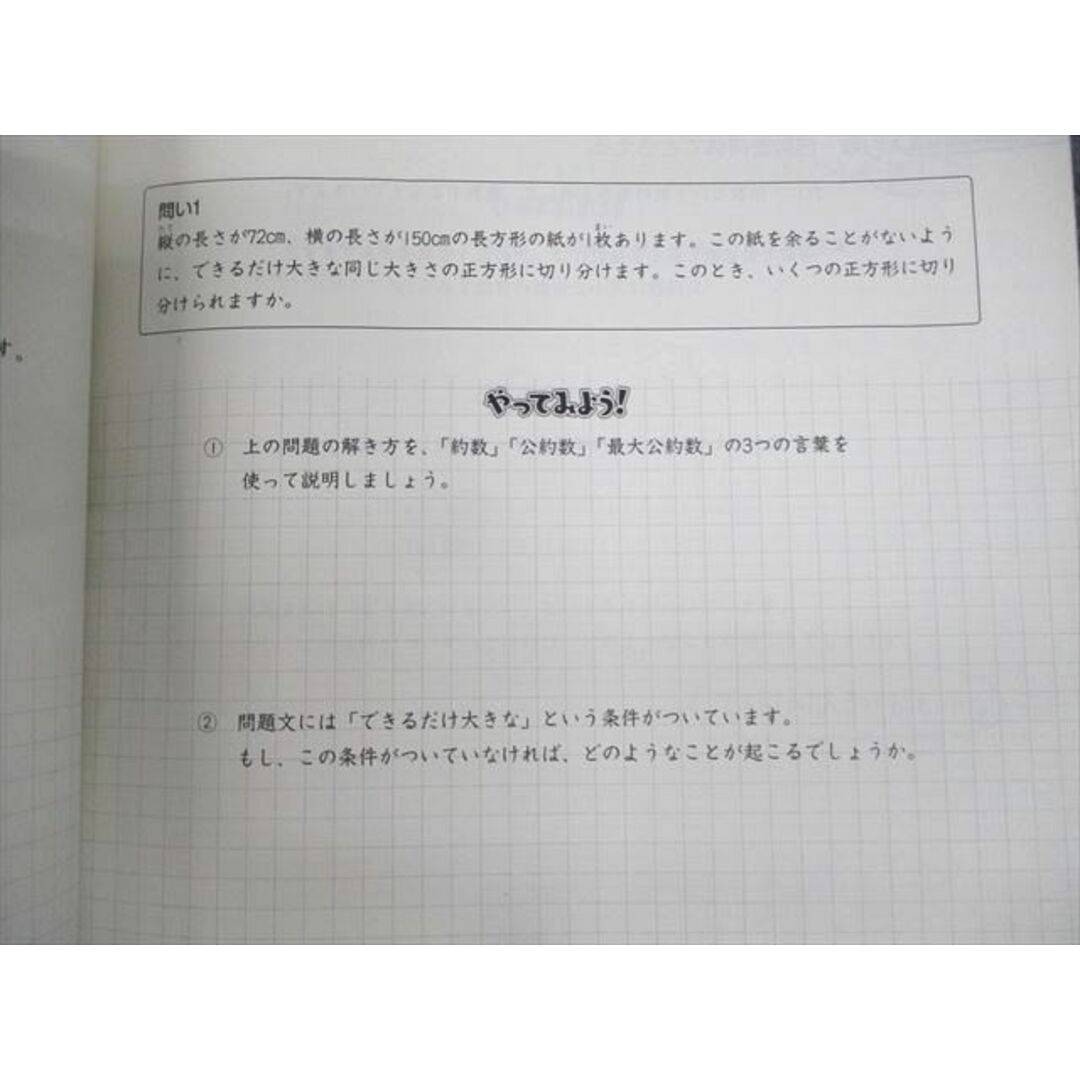 問い1
縦の長さが72cm、横の長さが150cmの長方形の紙が1枚あります。この紙を余ることがないよう
に、できるだけ大きな同じ大きさの正方形に切り分けます。このとき、いくつの正方形に切り
分けられますか。
す。
やってみよう!
① 上の問題の解き方を、「約数」「公約数」「最大公約数」の3つの言葉を
使って説明しましょう。
② 問題文には「できるだけ大きな」という条件がついています。
もし、この条件がついていなければ、どのようなことが起こるでしょうか。